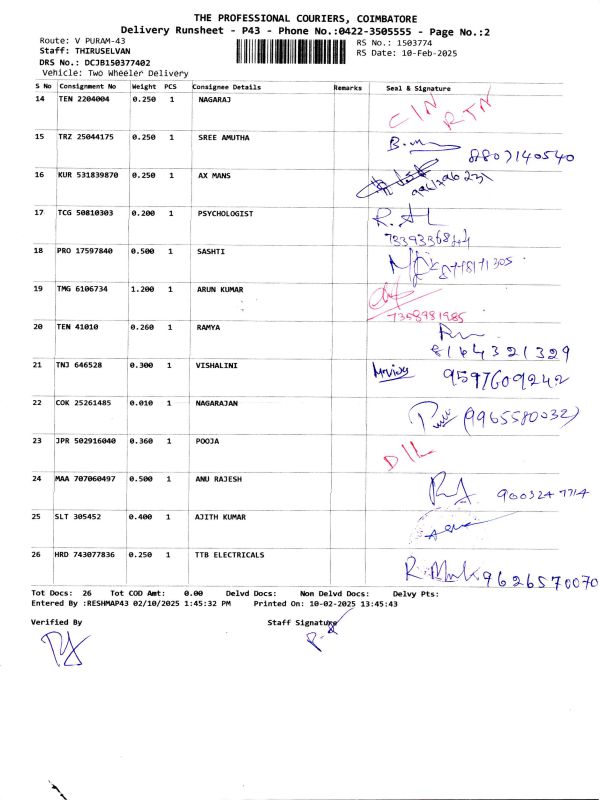 THE PROFESSIONAL COURIERS, COIMBATORE
Delivery Runsheet - P43 - Phone No.:0422-3505555 - Page No.:2
Route: V PURAM-43
RS No.: 1503774
Staff: THIRUSELVAN
RS Date: 10-Feb-2025
DRS No.: DCJB150377402
Vehicle: Two Wheeler Delivery
S No Consignment No Weight PCS Consignee Details Remarks Seal & Signature
14 TEN 2204004 0.250 1 NAGARAJ C/N RTN
15 TRZ 25044175 0.250 1 SREE AMUTHA 8807140540
16 KUR 531839870 0.250 1 AX MANS
17 TCG 50810303 0.200 1 PSYCHOLOGIST
18 PRO 17597840 0.500 1 SASHTI
19 TMG 6106734 1.200 1 ARUN KUMAR
7358981985
20 TEN 41010 0.260 1 RAMYA
8164321329
21 TNJ 646528 0.300 1 VISHALINI 9597609242
22 COK 25261485 0.010 1 NAGARAJAN (9965580032)
23 JPR 502916040 0.360 1 POOJA D/L
24 MAA 707060497 0.500 1 ANU RAJESH 9003247714
25 SLT 305452 0.400 1 AJITH KUMAR
26 HRD 743077836 0.250 1 TTB ELECTRICALS 9626570070
Tot Docs: 26 Tot COD Amt: 0.00 Delvd Docs: Non Delvd Docs: Delvy Pts:
Entered By :RESHMAP43 02/10/2025 1:45:32 PM Printed On: 10-02-2025 13:45:43
Verified By Staff Signature